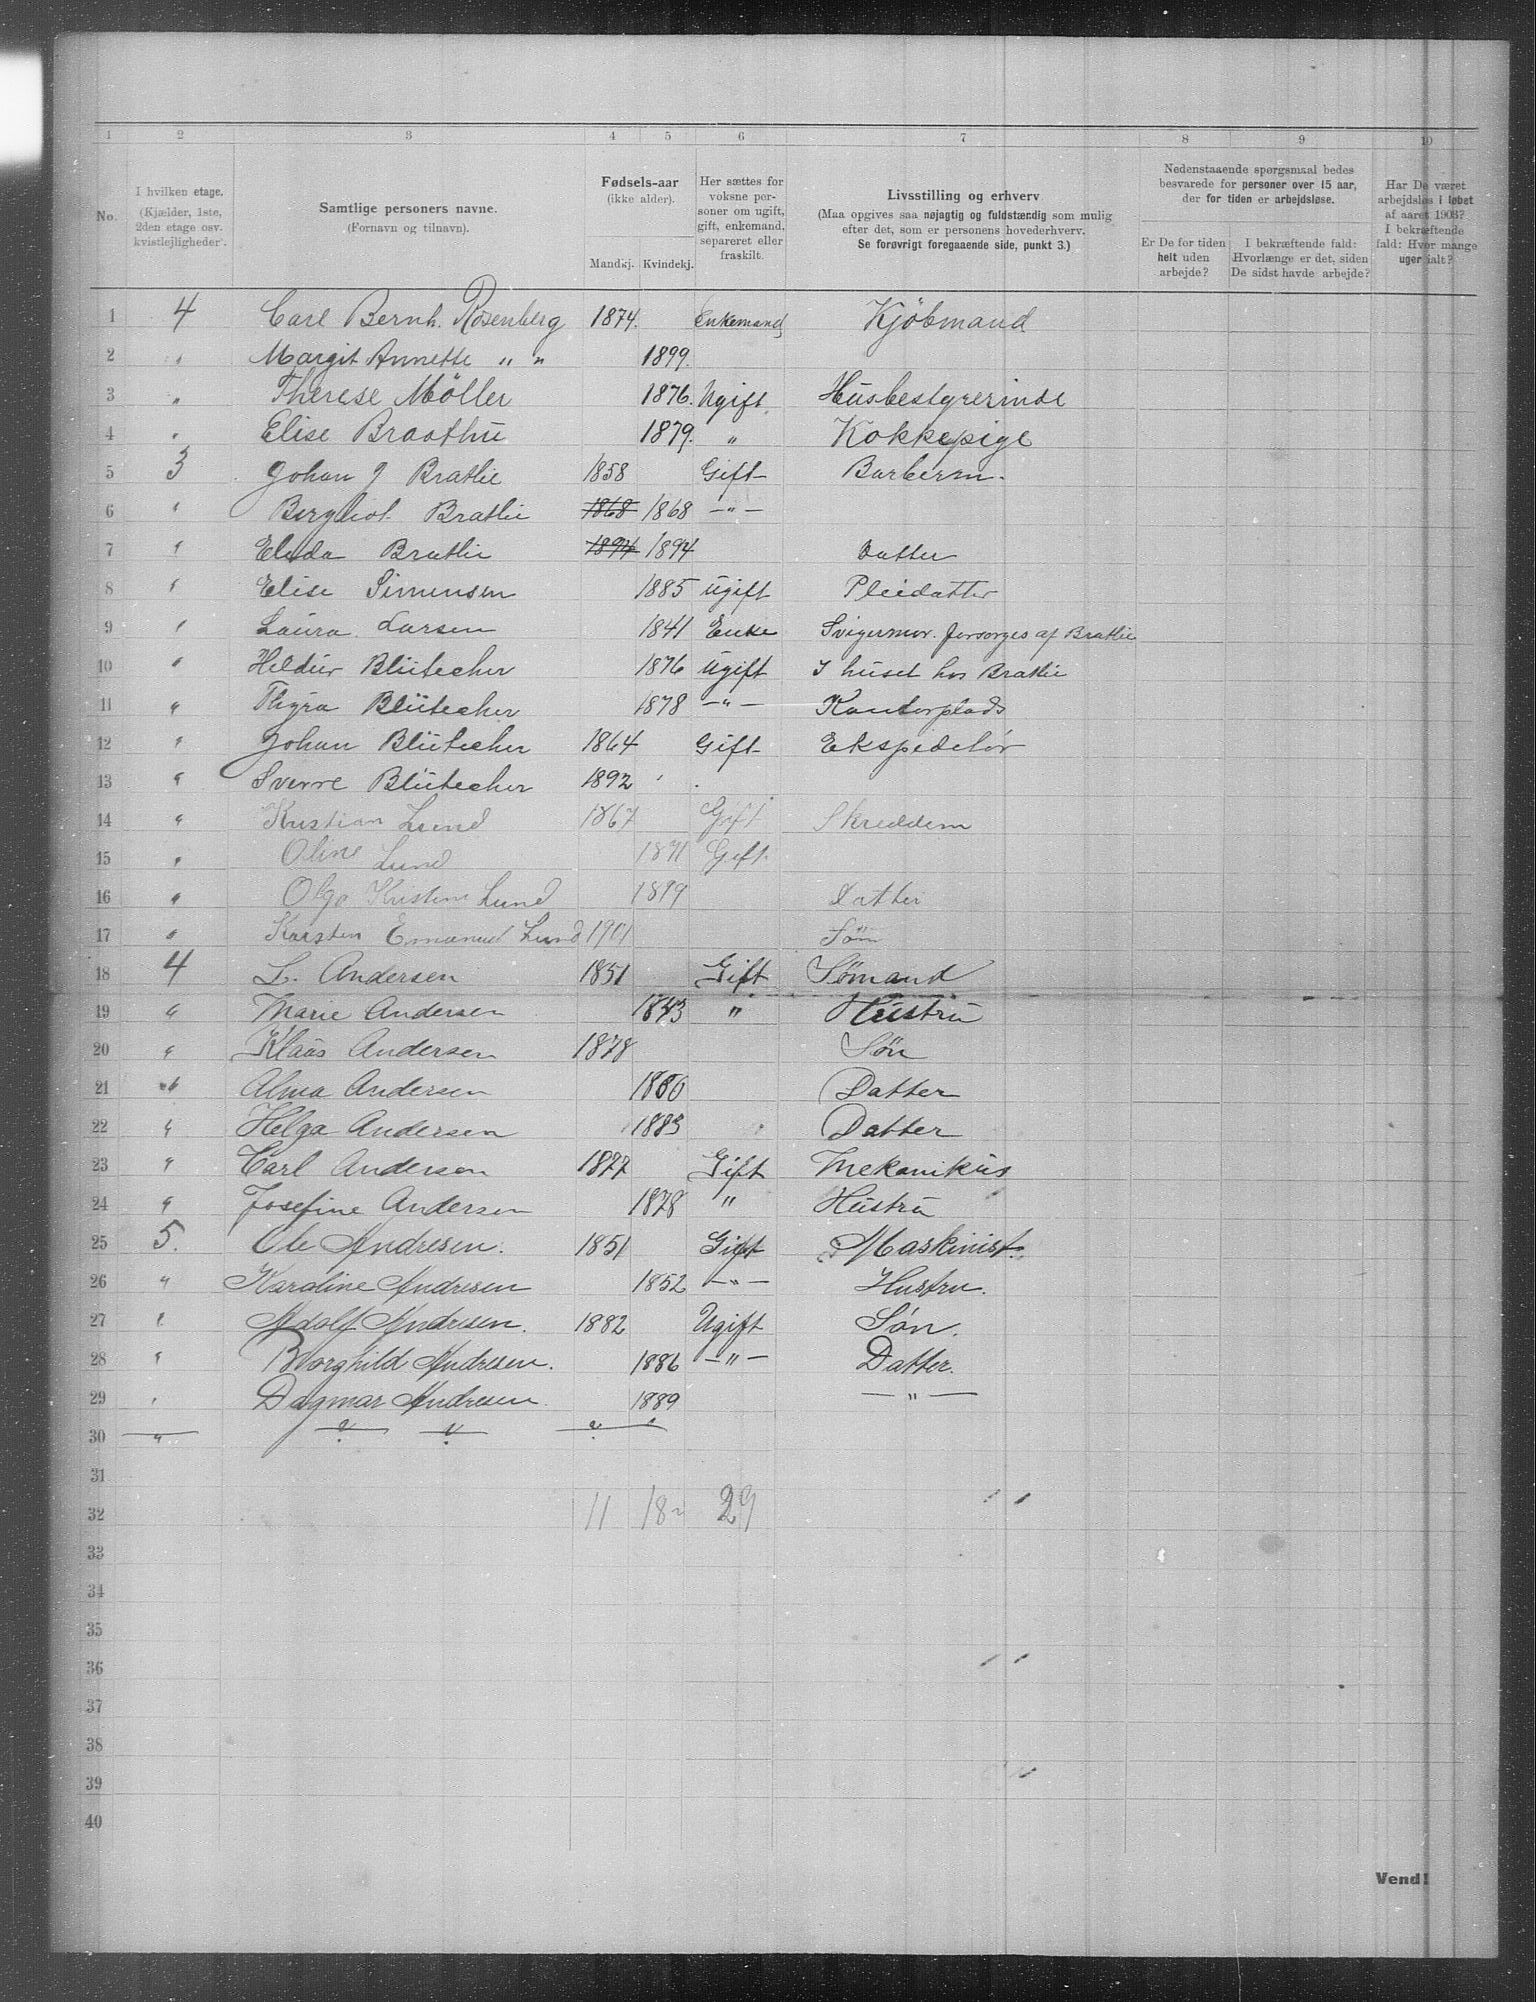 1 2 3 4 5 6 7 8 9 10
No.
I hvilken etage.
(Kjælder, 1ste,
2den etage osv.
kvistlejligheder).
Samtlige personers navne.
(Fornavn og tilnavn).
Fødsels-aar
(ikke alder).
Mandkj. Kvindekj.
Her sættes for
voksne per-
soner om ugift,
gift, enkemand,
separeret eller
fraskilt.
Livsstilling og erhverv
(Maa opgives saa nøjagtig og fuldstændig som mulig
efter det, som er personens hovederhverv.
Se forøvrigt foregaaende side, punkt 3.)
Nedenstaaende spørgsmaal bedes
besvarede for personer over 15 aar,
der for tiden er arbejdsløse.
Er De for tiden
helt uden
arbejde?
I bekræftende fald:
Hvorlænge er det, siden
De sidst havde arbejde?
Har De været
arbejdsløs i løbet
af aaret 1903?
I bekræftende
fald: Hvor mange
uger ialt?
1 4 Carl Bernh. Rosenberg 1874. Enkemand Kjöbmand
2 " Margit Annette " " 1899.
3 " Therese Möller 1876. Ugift Husbestyrerinde
4 " Elise Braathu 1879. " Kokkepige
5 3 Johan J Bratlie 1858 Gift Barberm.
6 " Bergliot Bratlie 1868 1868 —"—
7 " Elida Bratlie 1894 1894 Datter
8 " Elise Simensen 1885 ugift Pleiedatter
9 " Laura Larsen 1841 Enke Svigermor. forsorges af Bratlie
10 " Heldur Blütecher 1876 ugift I huset hos Bratlie
11 " Thyra Blütecher 1878 —"— Kontorplads
12 " Johan Blütecher 1864 Gift Ekspeditör
13 " Sverre Blütecher 1892
14 " Kristian Lund 1867 Gift Skreddem
15 " Oline Lund 1871 Gift.
16 " Olga Kristine Lund 1899 Datter
17 " Karsten Emanuel Lund 1901 Søn
18 4 L. Andersen 1851 Gift Sömand
19 " Marie Andersen 1843 " Hustru
20 " Klaus Andersen 1878 Sön
21 " Alma Andersen 1880 Datter
22 " Helga Andersen 1883 Datter
23 " Carl Andersen 1877 Gift Mekanikus
24 " Josefine Andersen 1878 " Hustru
25 5. Ole Andresen. 1851 Gift Maskinist.
26 " Karoline Andresen 1852 —"— Hustru.
27 " Adolf Andresen. 1882 Ugift Søn.
28 " Borghild Andresen. 1886 —"— Datter.
29 " Dagmar Andresen. 1889 —"—
30 —"— —"— —"— —"—
31
32 11 18 29
33
34
35
36
37
38
39
40
Vend!